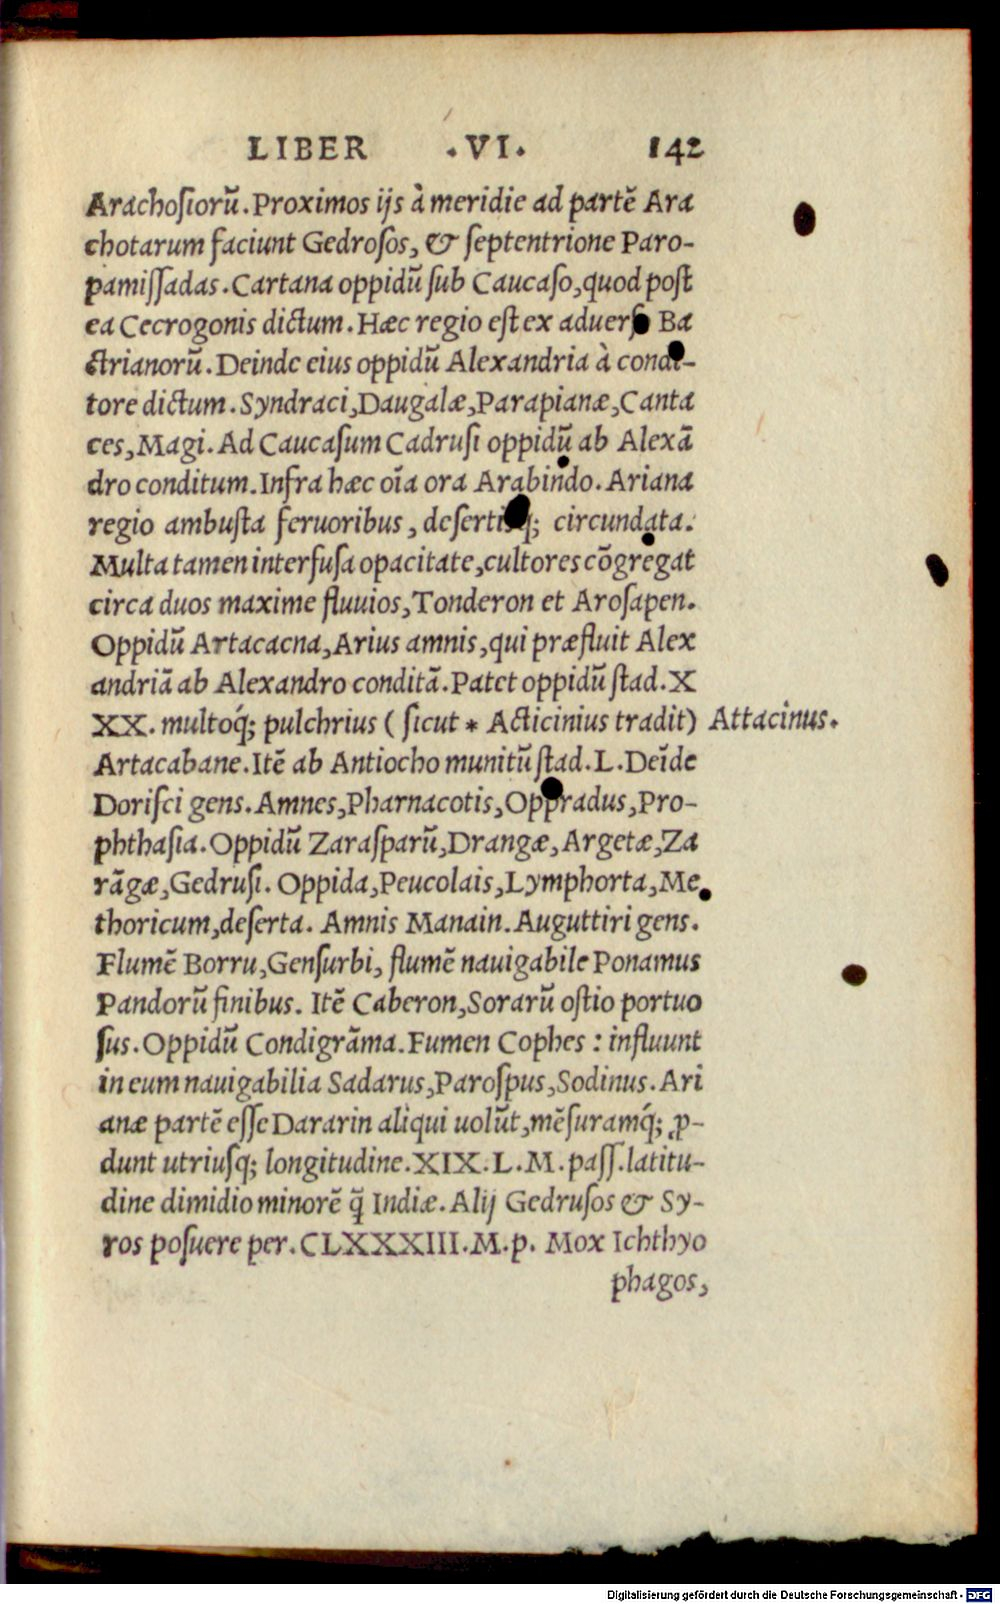 LIBER .VI. 142
Arachoſiorū. Proximos ijs à meridie ad partē Ara
chotarum faciunt Gedroſos, & ſeptentrione Paro-
pamiſſadas. Cartana oppidū ſub Caucaſo, quod poſt
ea Cecrogonis dictum. Hæc regio eſt ex aduerſo Ba
ctrianorū. Deinde eius oppidū Alexandria à condi-
tore dictum. Syndraci, Daugalæ, Parapianæ, Canta
ces, Magi. Ad Caucaſum Cadruſi oppidū ab Alexā
dro conditum. Infra hæc oīa ora Arabindo. Ariana
regio ambuſta feruoribus, deſertisq́; circundata.
Multa tamen interfuſa opacitate, cultores cōgregat
circa duos maxime fluuios, Tonderon et Aroſapen.
Oppidū Artacacna, Arius amnis, qui præfluit Alex
andriā ab Alexandro conditā. Patet oppidū ſtad. X
XX. multoq́; pulchrius ( ſicut * Acticinius tradit) Attacinus.
Artacabane. Itē ab Antiocho munitū ſtad. L. Deīde
Doriſci gens. Amnes, Pharnacotis, Oppradus, Pro-
phthaſia. Oppidū Zaraſparū, Drangæ, Argetæ, Za
rāgæ, Gedruſi. Oppida, Peucolais, Lymphorta, Me
thoricum, deſerta. Amnis Manain. Auguttiri gens.
Flumē Borru, Genſurbi, flumē nauigabile Ponamus
Pandorū finibus. Itē Caberon, Sorarū oſtio portuo
ſus. Oppidū Condigrāma. Fumen Cophes : influunt
in eum nauigabilia Sadarus, Paroſpus, Sodinus. Ari
anæ partē eſſe Dararin aliqui uolūt, mēſuramq́; ꝓ-
dunt utriuſq; longitudine. XIX. L. M. paſſ. latitu-
dine dimidio minorē q̄ Indiæ. Alij Gedruſos & Sy-
ros poſuere per. CLXXXIII. M. p. Mox Ichthyo
phagos,
Digitalisierung gefördert durch die Deutsche Forschungsgemeinschaft - DFG